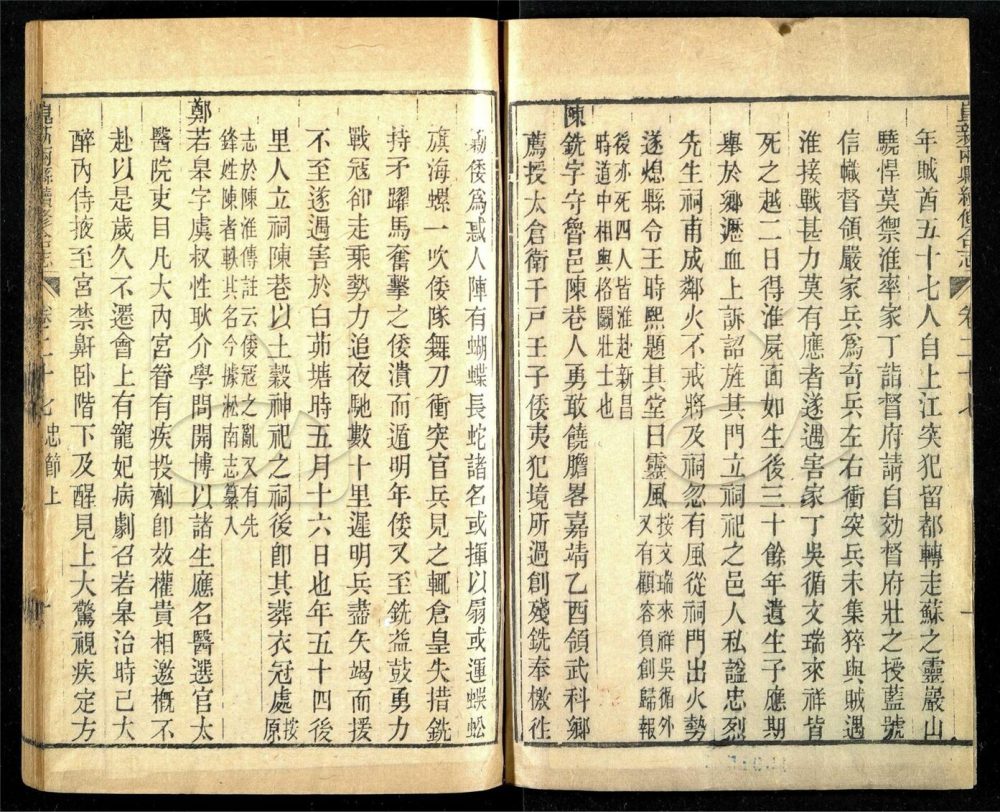 崑新兩縣續修合志 卷二十七
年賊酋五十七人自上江突犯留都轉走蘇之靈巖山
驍悍莫禦淮率家丁詣督府請自効督府壯之授藍號
信幟督領嚴家兵爲奇兵左右衝突兵未集猝與賊遇
淮接戰甚力莫有應者遂遇害家丁吳循文瑞來祥皆
死之越二日得淮屍面如生後三十餘年遺生子應期
舉於鄉瀝血上訴詔旌其門立祠祀之邑人私諡忠烈
先生祠南成鄰火不戒將及祠忽有風從祠門出火勢
遂熄縣令王時熙題其堂曰靈風按文瑞來祥吳循外又有顧容負創歸報
後亦死四人皆淮赴新昌時道中相與格鬭壯士也
陳銑字守魯邑陳巷人勇敢饒膽畧嘉靖乙酉領武科鄉
薦授太倉衛千戸王子倭夷犯境所過創殘銑奉檄徃
勦倭爲惑人陣有蝴蝶長蛇諸名或揮以扇或運蜈蚣
旗海螺一吹倭隊舞刀衝突官兵見之輒倉皇失措銑
持矛躍馬奮擊之倭潰而遁明年倭又至銑益鼓勇力
戰冦卻走乘勢力追夜馳數十里遲明兵盡矢竭而援
不至遂遇害於白茆塘時五月十六日也年五十四後
里人立祠陳巷以土穀神祀之祠後卽其葬衣冠處按原
志於陳淮傳註云倭冦之亂又有先鋒姓陳者軼其名今據淞南志纂入
鄭若皋字虞叔性耿介學問開博以諸生應名醫選官太
醫院吏目凡大內宮眷有疾投劑卽效權貴相邀概不
赴以是歲久不遷會上有寵妃病劇召若皋治時已大
醉內侍掖至宮禁鼾卧階下及醒見上大驚視疾定方
崑新兩縣續修合志 卷二十七 忠節上 十